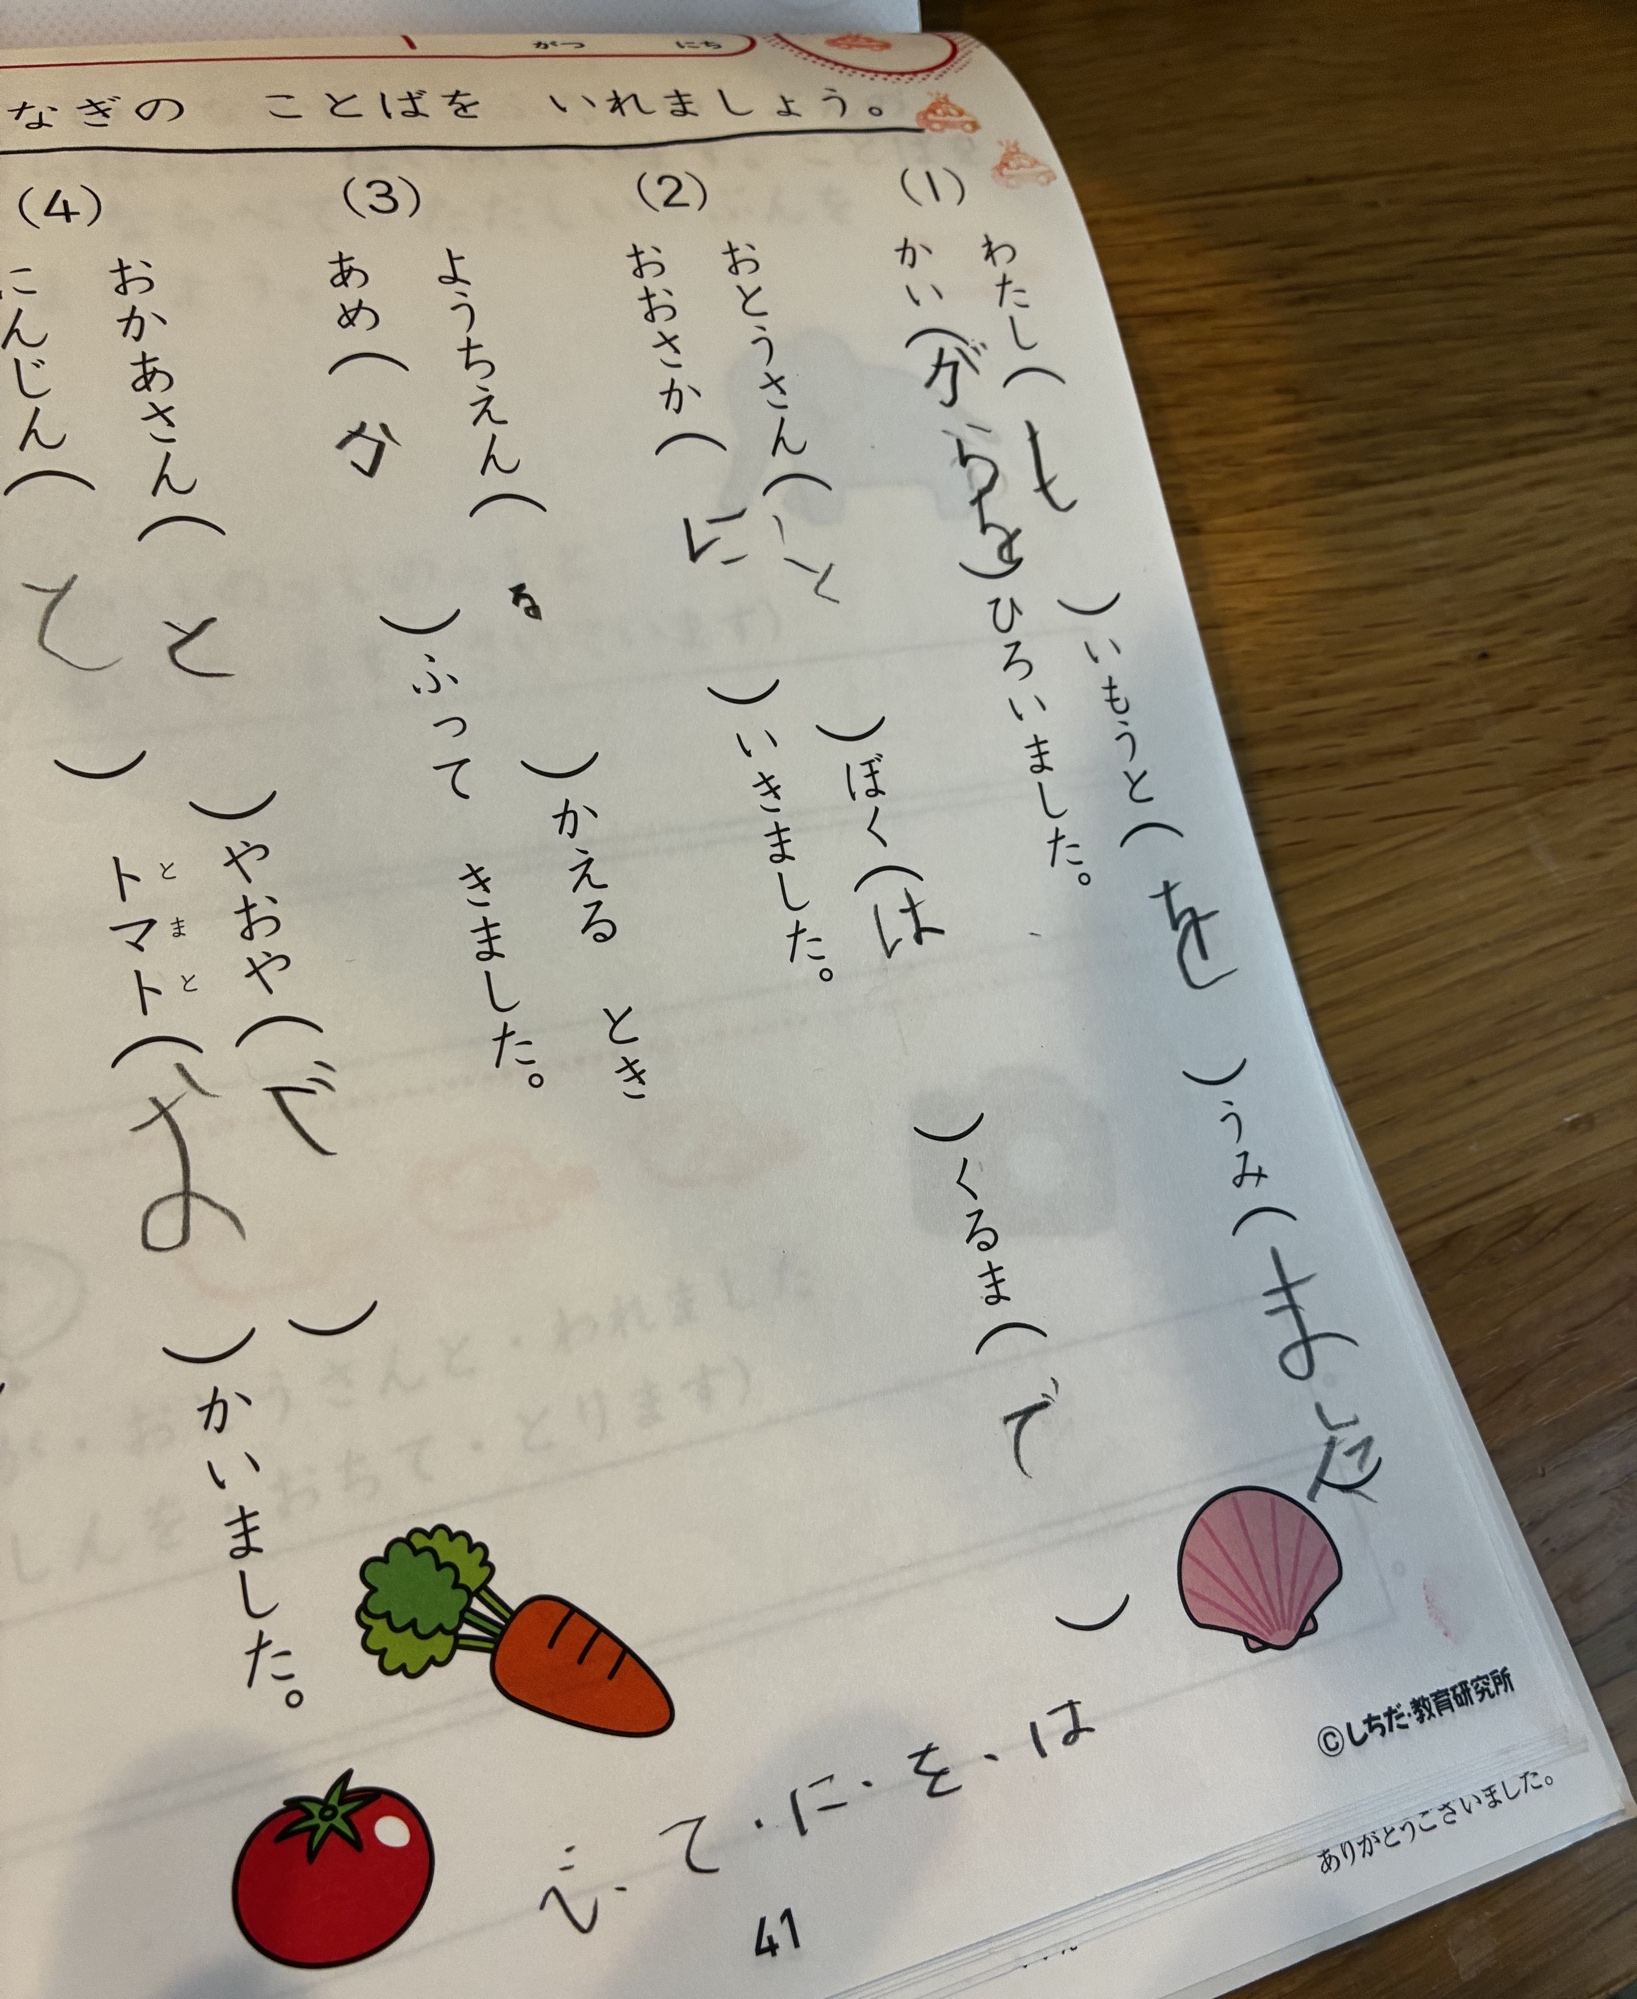 がつ にち
なぎの ことばを いれましょう。
(1)
わたし(も)いもうと(を)うみ(ました)
かい(がらを)ひろいました。
(2)
おとうさん(と)ぼく(は)くるま(で)
おおさか(に)いきました。
(3)
ようちえん(を)かえる とき
あめ(か)ふって きました。
(4)
おかあさん(と)やおや(で)
にんじん(と)トマト(を)かいました。
とまと
は・を・に・て・で
©しちだ・教育研究所
ありがとうございました。
41